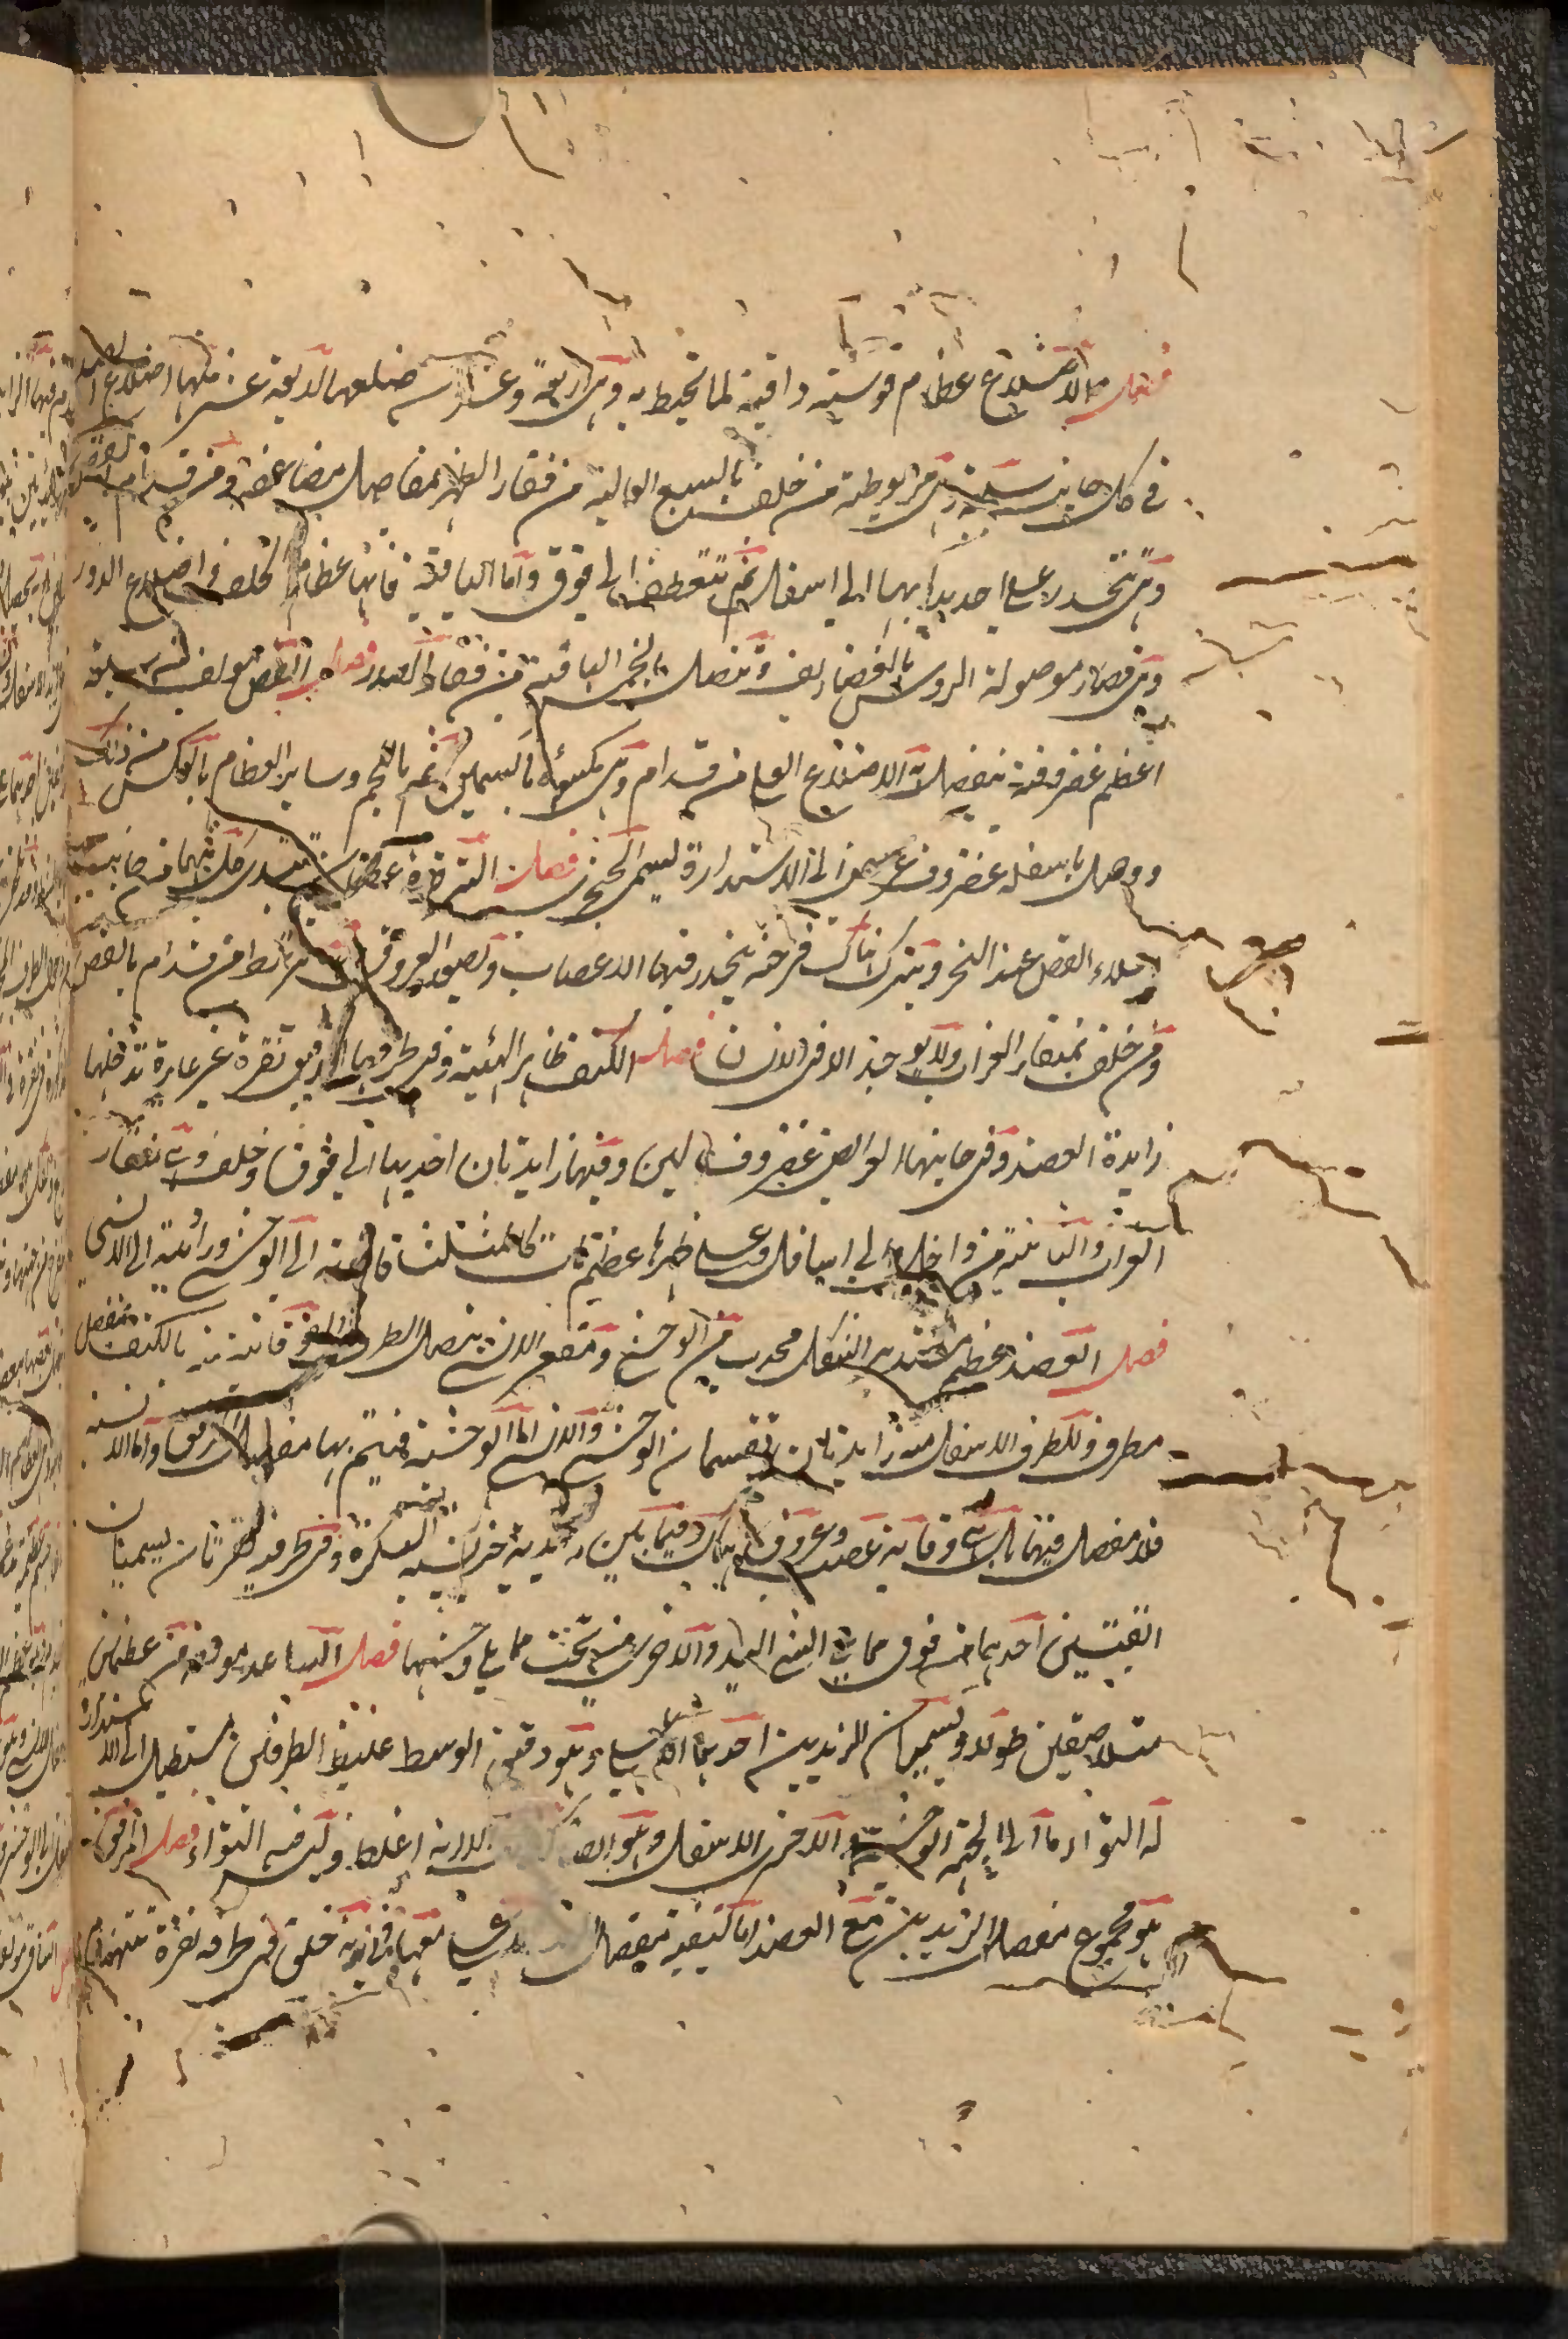 فصل الاضلاع عظام قوسية واقية لما تحيط به وهي اربعة وعشرون ضلعا اربعة عشر منها اضلاع الصدر
في كل جانب سبعة وهي مربوطة من خلف بالسبع العالية من فقار الظهر بمفاصل مضاعفة ومن قدام بالقص
وهي تنحدر على احديدابها الى اسفل ثم تنعطف الى فوق واما الباقية فانها عظام الخلف و اضلاع الزور
وهي قصار موصولة الروس بالغضاريف وتتصل بالخمس الباقية من فقار الصدر فصل القص مولف من سبعة
اعظم غضروفية يتصل به الاضلاع العلى من قدام وهي مكسوة بالسمين ثم باللحم وساير العظام بالعكس من ذلك
ووصل باسفله غضروف عريض الى الاستدارة ليسمى الخنجري فصل الترقوة عظمان يبتدى كل منهما من جانب
اعلاء القص عند النحر ويترك هناك فرجة ينحدر فيها الاعصاب وتصعد العروق من قدام بالقص
ومن خلف بمنقار الغراب ولا يوجد الا في الانسان فصل الكتف ظاهر الهيئة وفي طرفها الدقيق نقرة غير غايرة تدخلها
زايدة العضد وفي جانبها العريض غضروف لين وفيها زايدتان احديهما الى فوق وخلف وهي منقار
الغراب والثانية من داخل الى اسافل وعلى ظهرها عظم كالمثلث قاعدته الى الوحشي وزاويته الى الانسي
فصل العضد عظم مستدير الشكل محدب من الوحشي ومقعر الانسي يتصل الطرف الفوقاني منه بالكتف بمفصل
مطرف وللطرف الاسفل منه زايدتان يقسمان الوحشي والانسي اما الوحشية فيتم بها مفصل المرفق واما الانسية
فلا مفصل فيها بل هي وقاية عصب وعروق هناك وفيما بين الزايدتين حز يشبه البكرة وفي طرفيه نقرتان تسميان
العتبتين احديهما من فوق مما يلي انسي اليد والاخرى من تحت مما يلي وحشيها فصل الساعد مولف من عظمين
متلاصقين طولا ويسميان الزندين احدهما الاعلى وهو دقيق الوسط غليظ الطرفين مستطيل الى الاستدارة
له التواء ما الى الجهة الوحشية والاخرى الاسفل وهو الا انه اغلظ وليس فيه التواء فصل المرفق
هو مجموع مفصل الزندين مع العضد اما كيفية مفصل الزند الاعلى معها فانه خلق في طرفه نقرة تتهندم